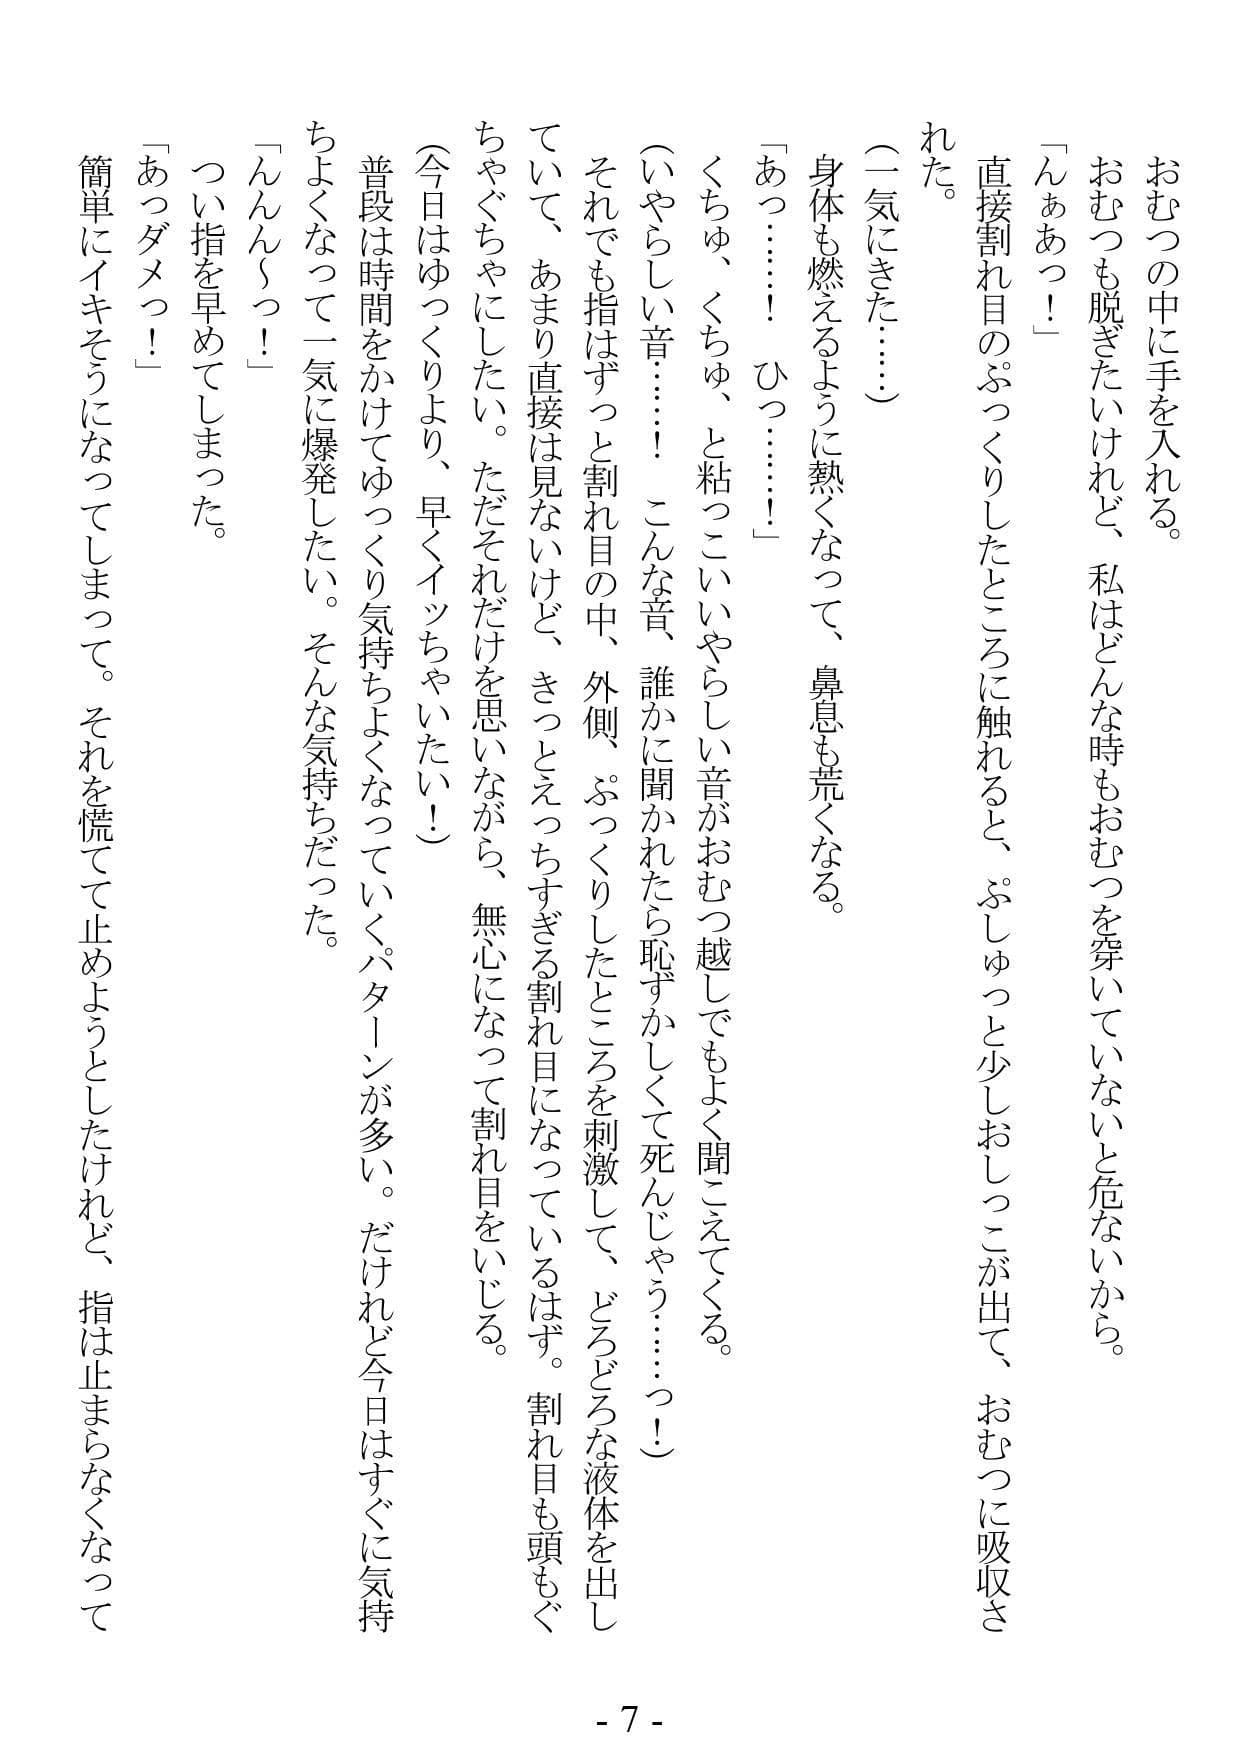 おむつの中に手を入れる。
おむつも脱ぎたいけれど、私はどんな時もおむつを穿いていないと危ないから。
「んぁあっ！」
直接割れ目のぷっくりしたところに触れると、ぷしゅっと少しおしっこが出て、おむつに吸収さ
れた。
（一気にきた……）
身体も燃えるように熱くなって、鼻息も荒くなる。
「あっ……！　ひっ……！」
くちゅ、くちゅ、と粘っこいいやらしい音がおむつ越しでもよく聞こえてくる。
（いやらしい音……！　こんな音、誰かに聞かれたら恥ずかしくて死んじゃう……っ！）
それでも指はずっと割れ目の中、外側、ぷっくりしたところを刺激して、どろどろな液体を出し
ていて、あまり直接は見ないけど、きっとえっちすぎる割れ目になっているはず。割れ目も頭もぐ
ちゃぐちゃにしたい。ただそれだけを思いながら、無心になって割れ目をいじる。
（今日はゆっくりより、早くイッちゃいたい！）
普段は時間をかけてゆっくり気持ちよくなっていくパターンが多い。だけれど今日はすぐに気持
ちよくなって一気に爆発したい。そんな気持ちだった。
「んんん～っ！」
つい指を早めてしまった。
「あっダメっ！」
簡単にイキそうになってしまって。それを慌てて止めようとしたけれど、指は止まらなくなって
- 7 -